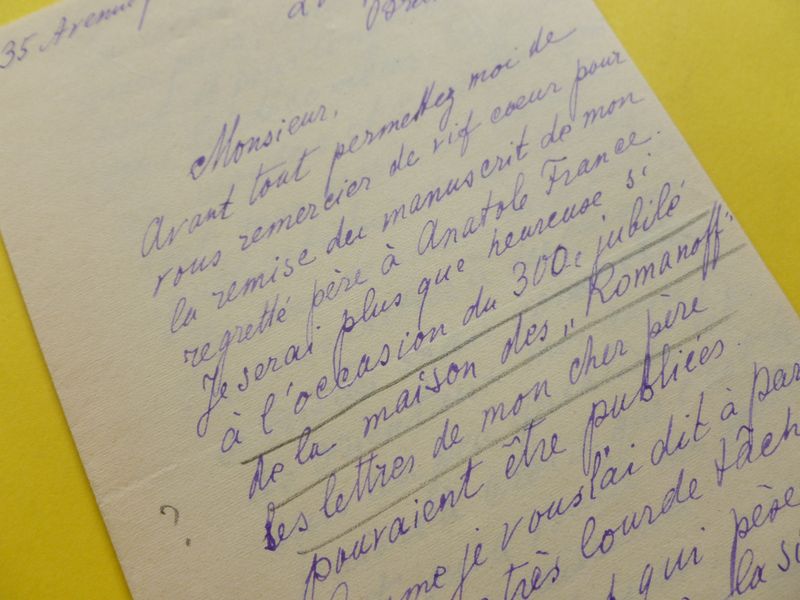 35 Avenue
Monsieur,
Avant tout permettez moi de
vous remercier de vif coeur pour
la remise du manuscrit de mon
regretté père à Anatole France.
Je serai plus que heureuse si
à l'occasion du 300e jubilé
de la maison des „Romanoff"
les lettres de mon cher père
pouvaient être publiées.
me je vous l'ai dit à par
très lourde tâch
qui pèse
la si
?